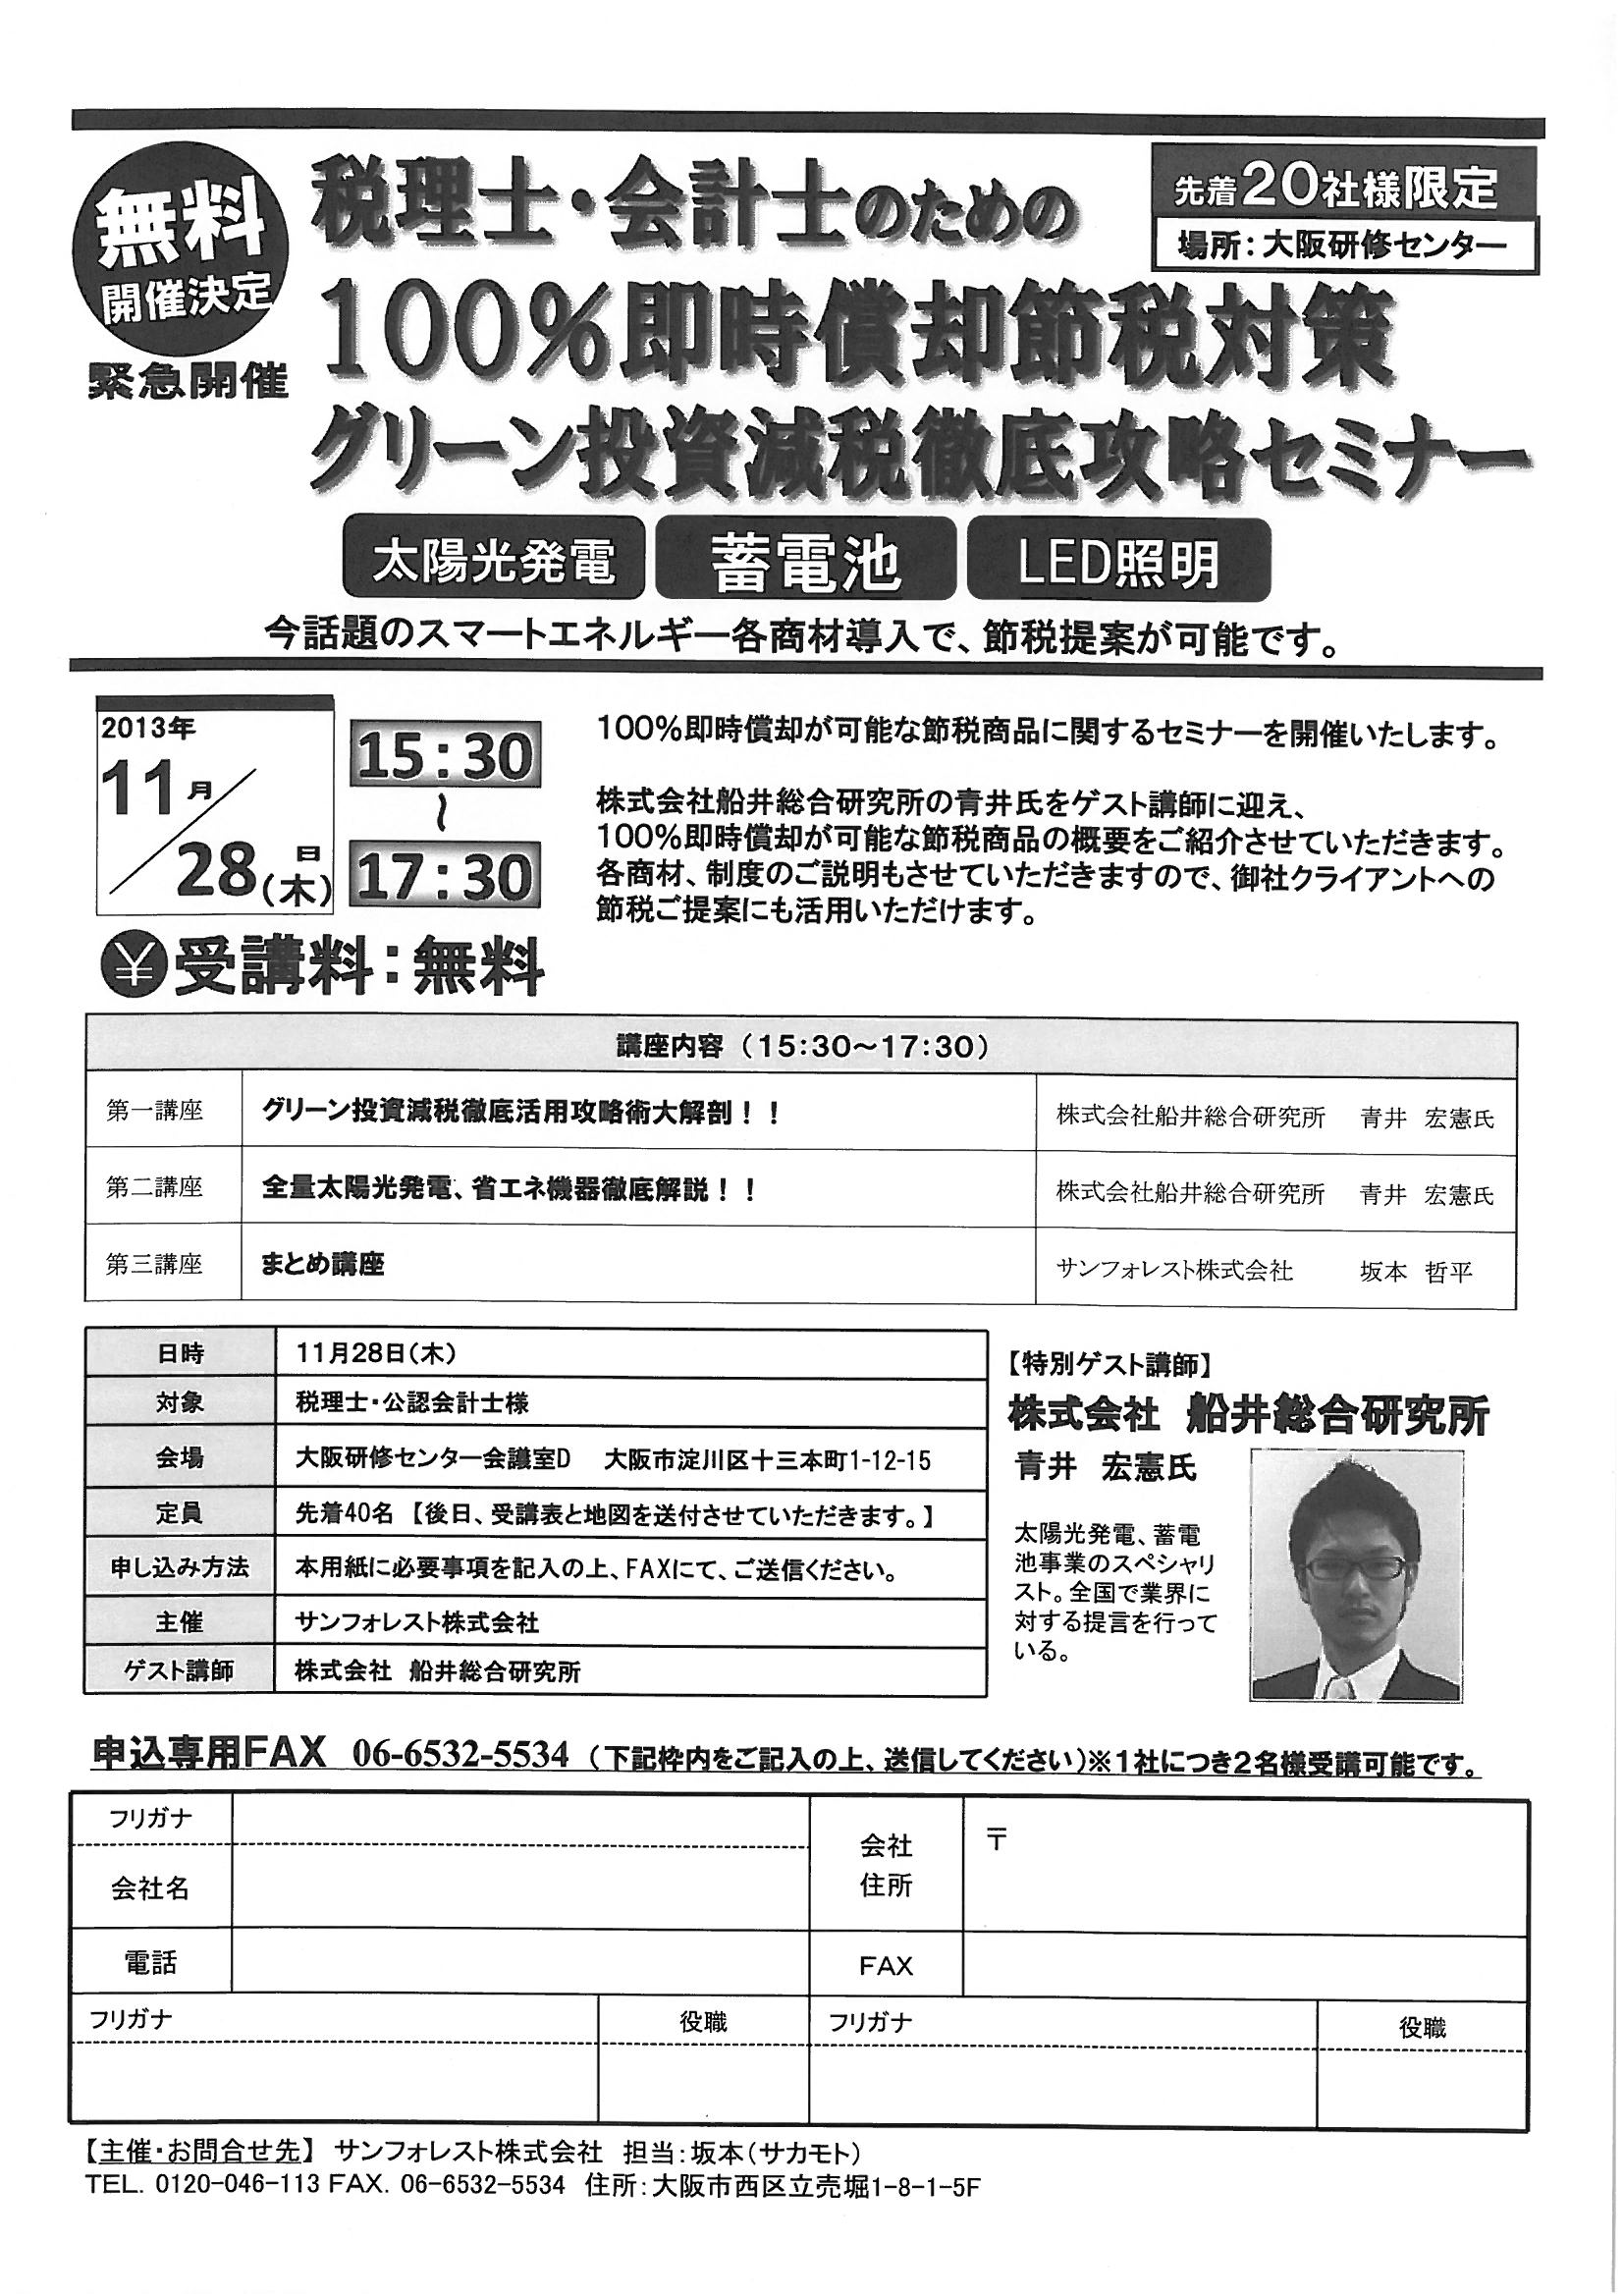 無料
開催決定
緊急開催
税理士・会計士のための
100%即時償却節税対策
グリーン投資減税徹底攻略セミナー
先着20社様限定
場所:大阪研修センター
太陽光発電 蓄電池 LED照明
今話題のスマートエネルギー各商材導入で、節税提案が可能です。
2013年
11月
28日(木)
15:30
~
17:30
¥受講料:無料
100%即時償却が可能な節税商品に関するセミナーを開催いたします。
株式会社船井総合研究所の青井氏をゲスト講師に迎え、
100%即時償却が可能な節税商品の概要をご紹介させていただきます。
各商材、制度のご説明もさせていただきますので、御社クライアントへの
節税ご提案にも活用いただけます。
講座内容(15:30~17:30)
第一講座 グリーン投資減税徹底活用攻略術大解剖!! 株式会社船井総合研究所 青井 宏憲氏
第二講座 全量太陽光発電、省エネ機器徹底解説!! 株式会社船井総合研究所 青井 宏憲氏
第三講座 まとめ講座 サンフォレスト株式会社 坂本 哲平
日時 11月28日(木)
対象 税理士・公認会計士様
会場 大阪研修センター会議室D 大阪市淀川区十三本町1-12-15
定員 先着40名【後日、受講表と地図を送付させていただきます。】
申し込み方法 本用紙に必要事項を記入の上、FAXにて、ご送信ください。
主催 サンフォレスト株式会社
ゲスト講師 株式会社 船井総合研究所
【特別ゲスト講師】
株式会社 船井総合研究所
青井 宏憲氏
太陽光発電、蓄電
池事業のスペシャリ
スト。全国で業界に
対する提言を行って
いる。
申込専用FAX 06-6532-5534(下記枠内をご記入の上、送信してください)※1社につき2名様受講可能です。
フリガナ
会社名
会社
住所
〒
電話 FAX
フリガナ 役職 フリガナ 役職
【主催・お問合せ先】 サンフォレスト株式会社 担当:坂本(サカモト)
TEL. 0120-046-113 FAX. 06-6532-5534 住所:大阪市西区立売堀1-8-1-5F